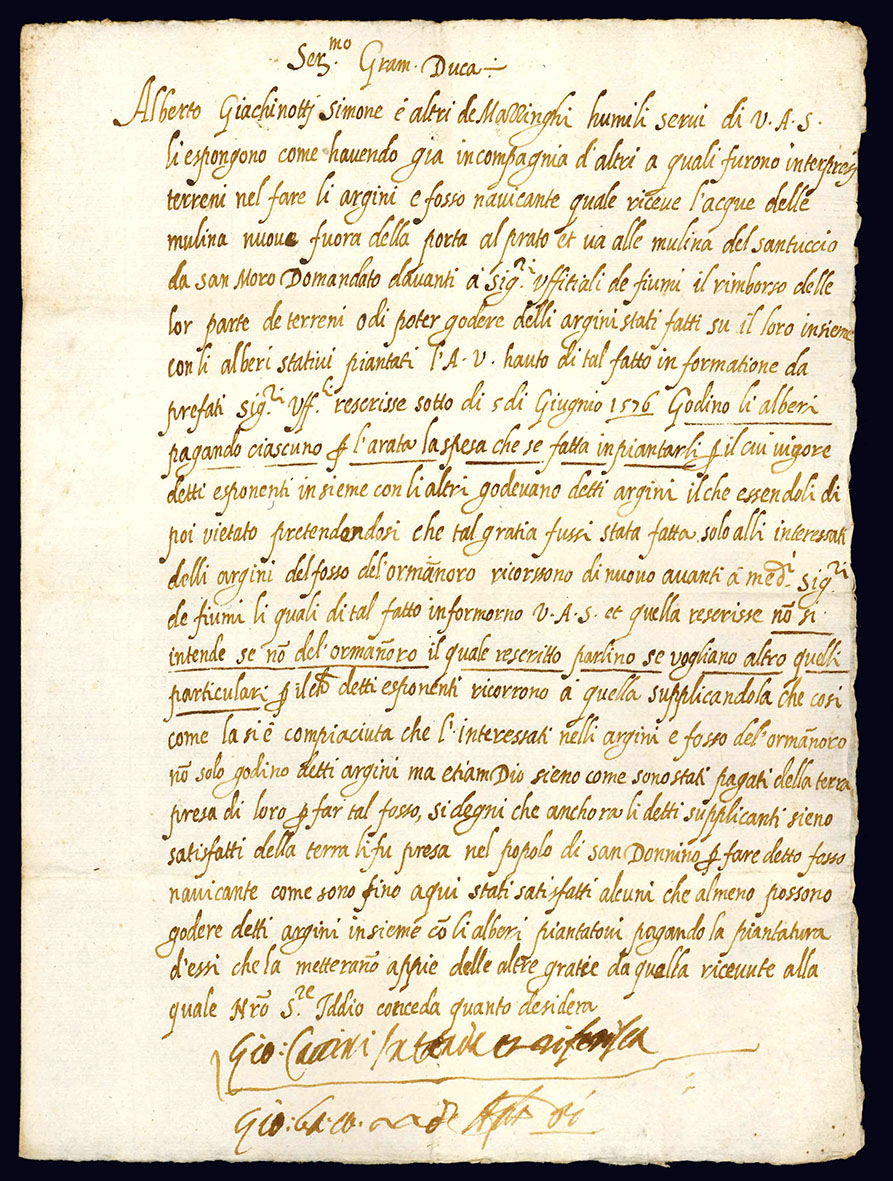 Ser.mo Gram. Duca
Alberto Giachinottj Simone é altri de Mazzinghi humili servi di V. A. S.
li espongono come havendo gia incompagnia d'altri a quali furono interpresi
terreni nel fare li argini e fosso navicante quale riceve l'acque delle
mulina nuove fuora della porta al prato et va alle mulina del santuccio
da san Moro Domandato davanti á Sig.ri Uffitiali de fiumi il rimborso delle
lor parte de terreni o di poter godere delli argini stati fatti su il loro insieme
con li alberi stativi piantati l'A. V. hauto di tal fatto in formatione da
prefati Sig.ri Uff.li rescrisse sotto di 5 di Giugnio 1576 Godino li alberi
pagando ciascuno ꝑ l'arata la spesa che se fatta inpiantarli ꝑ il cui vigore
detti esponenti insieme con li altri godevano detti argini il che essendoli di
poi vietato pretendendosi che tal gratia fussi stata fatta solo alli interessati
delli argini del fosso del'ormãnoro ricorsono di nuovo avanti á med.i Sig.ri
de fiumi li quali di tal fatto informorno V. A. S. et quella rescrisse nõ si
intende se nõ del'ormãnoro il quale rescritto parlino se vogliano altro quelli
particulari ꝑ il detti esponenti ricorrono á quella supplicandola che cosi
come la si é compiaciuta che l'interessati nelli argini e fosso del'ormãnoro
nõ solo godino detti argini ma etiam Dio sieno come sono stati pagati della terra
presa di loro ꝑ far tal fosso, si degni che anchora li detti supplicanti sieno
satisfatti della terra li fu presa nel popolo di san Donnino ꝑ fare detto fosso
navicante come sono fino a qui stati satisfatti alcuni che almeno possono
godere detti argini insieme cõ li alberi piantatovi pagando la piantatura
d'essi che la metterañо appie delle altre gratie da quella ricevute alla
quale Nrõ S.re Iddio conceda quanto desidera
Gio: Caccini
Gio: